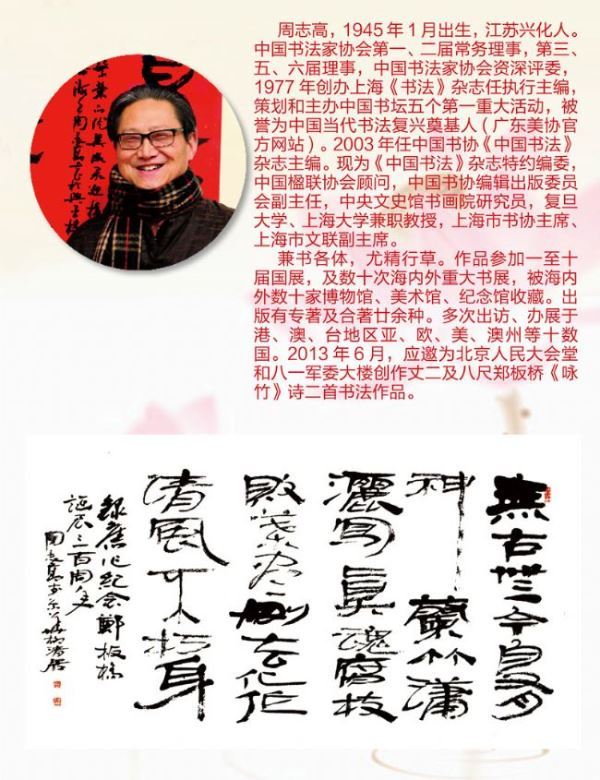 周志高，1945 年 1 月出生，江苏兴化人。
中国书法家协会第一、二届常务理事，第三、
五、六届理事，中国书法家协会资深评委，
1977 年创办上海《书法》杂志任执行主编，
策划和主办中国书坛五个第一重大活动，被
誉为中国当代书法复兴奠基人（广东美协官
方网站）。2003 年任中国书协《中国书法》
杂志主编。现为《中国书法》杂志特约编委，
中国楹联协会顾问，中国书协编辑出版委员
会副主任，中央文史馆书画院研究员，复旦
大学、上海大学兼职教授，上海市书协主席、
上海市文联副主席。
兼书各体，尤精行草。作品参加一至十
届国展，及数十次海内外重大书展，被海内
外数十家博物馆、美术馆、纪念馆收藏。出
版有专著及合著廿余种。多次出访、办展于
港、澳、台地区亚、欧、美、澳州等十数
国。2013 年 6 月，应邀为北京人民大会堂
和八一军委大楼创作丈二及八尺郑板桥《咏
竹》诗二首书法作品。
無古無今自
神蘭竹瀟
灑寫真魂腐枝
敗葉盡刪去化作
清風不朽身
紀念鄭板橋
誕辰三百周年
周志高